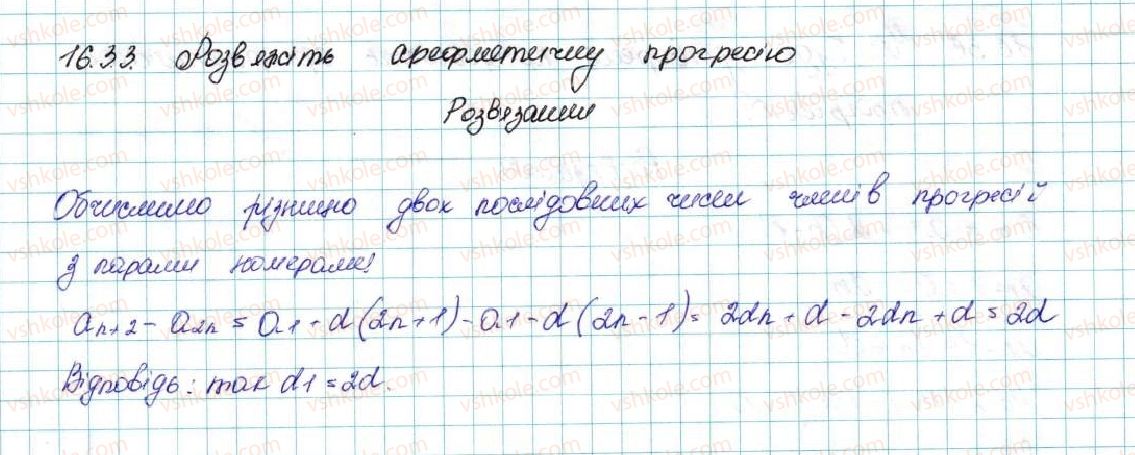 16.33. Розвяжіть арефметичну прогресію
Розвязання
Обчислимо різницю двох послідовних чисел членів прогресій
з парами номерами:
an+2 - a2n = a1 + d(2n+1) - a1 - d(2n-1) = 2dn + d - 2dn + d = 2d
Відповідь: так d1 = 2d.